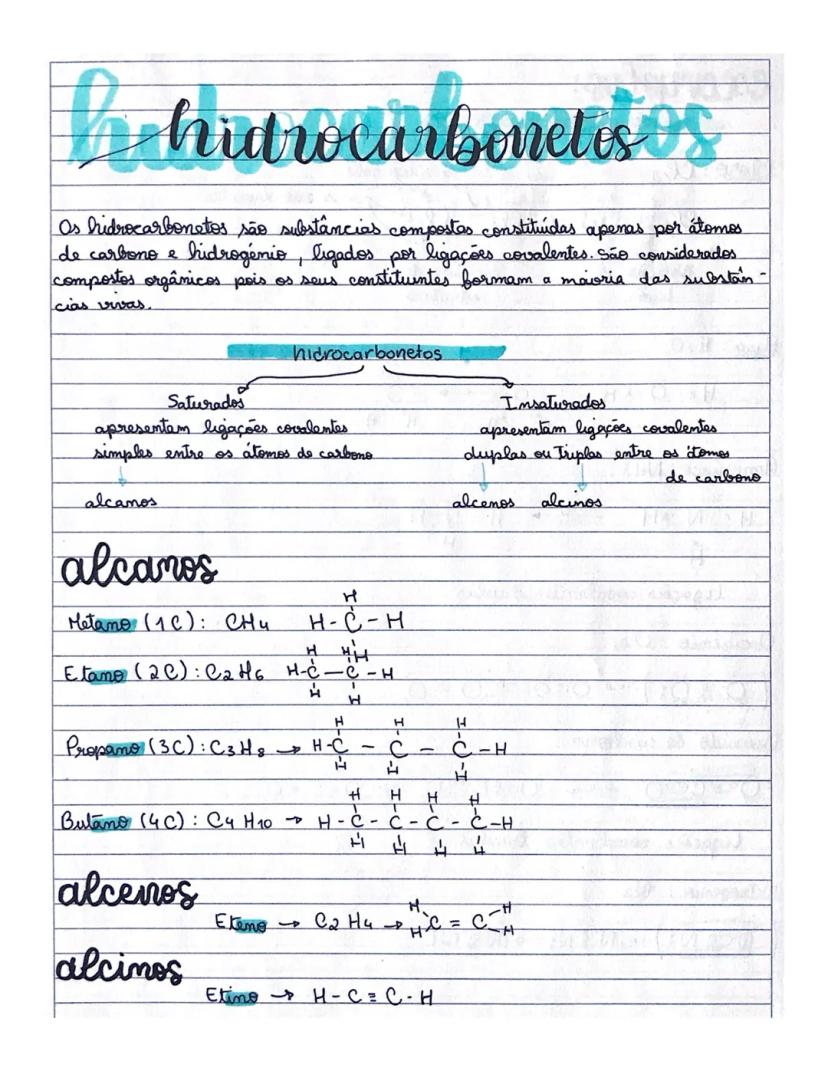 hidrocarbonetos
Os hidrocarbonetos são substâncias compostas constituídas apenas por átomos
de carbono e hidrogénio, ligados por ligações covalentes. São considerados
compostos orgânicos pois os seus constituintes formam a maioria das substân-
cias vivas.
hidrocarbonetos
Saturados
apresentam ligações covalentes
simples entre os átomos de carbono
alcanos
Insaturados
apresentam ligações covalentes
duplas ou Triplas entre os átomos
de carbono
alcenos alcinos
alcanos
H
Metano (1C): CH4 H-C-H
H
H H
Etano (2C): C2H6 H-C-C-H
H H
H H H
Propano (3C): C3H8 → H-C-C-C-H
H H H
H H H H
Butano (4C): C4H10 → H-C-C-C-C-H
H H H H
alcenos
H H
Eteno → C2H4 → C = C
H H
alcinos
Etino → H-C≡C-H